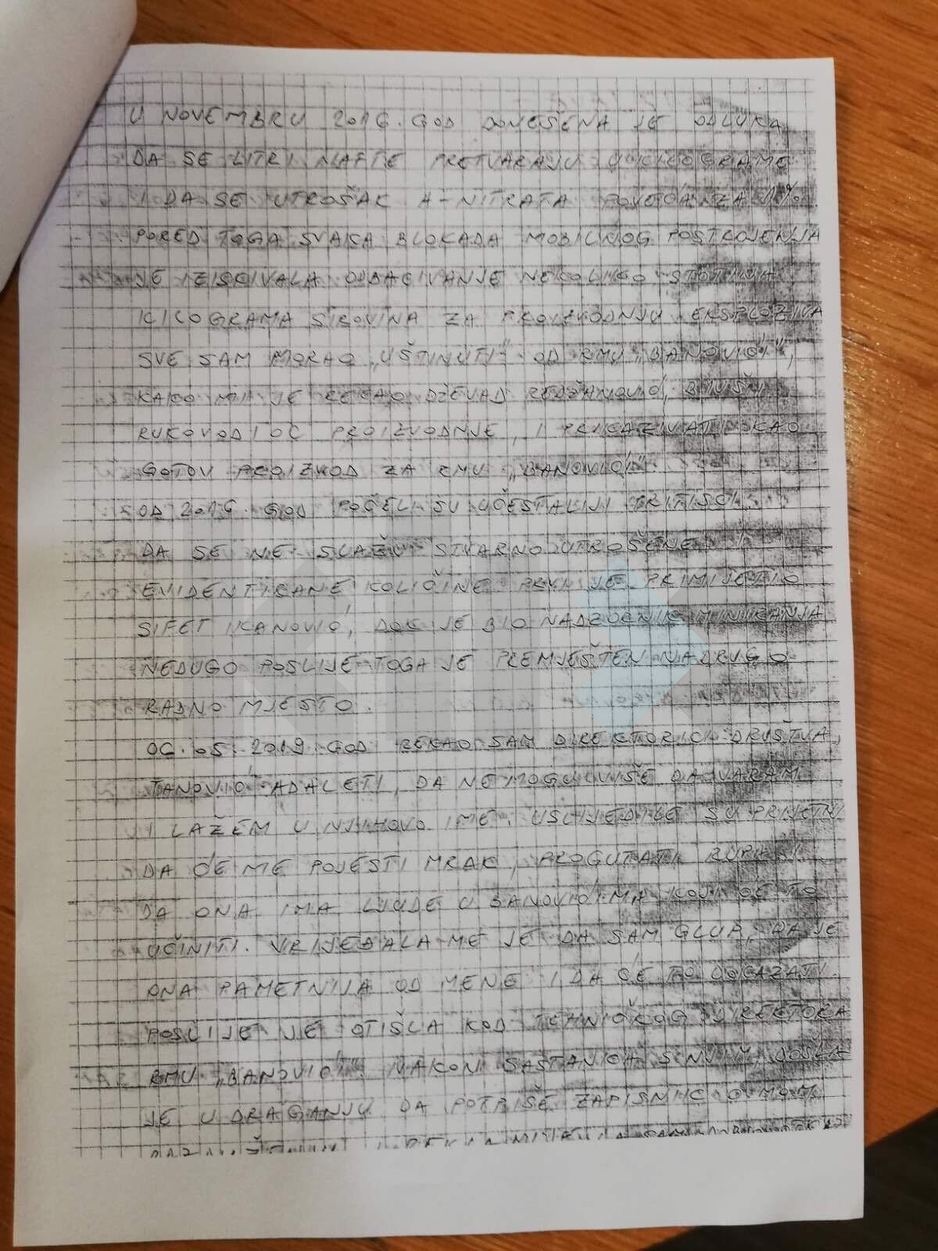 U NOVEMBRU 2016. GOD DONEŠENA JE ODLUKA
DA SE LITRI NAFTE PRETVARAJU U KILOGRAME
I DA SE UTROŠAK A-NITRATA POVEĆA ZA
PORED TOGA SVAKA BLOKADA MOBILNOG POSTROJENJA
JE IZISKIVALA ODBACIVANJE NEKOLIKO STOTINA
KILOGRAMA SIROVINA ZA PROIZVODNJU EKSPLOZIVA
SVE SAM MORAO „UŠTINUTI" OD RMU „BANOVIĆI",
KAKO MI JE REKAO DŽEVAD REDŽIĆ, BIVŠI
RUKOVODIOC PROIZVODNJE, I PRIKAZIVATI KAO
GOTOV PROIZVOD ZA RMU „BANOVIĆI".
OD 2016. GOD POČELI SU UČESTALIJI PRITISCI
DA SE NE SLAŽU STVARNO UTROŠENE I
EVIDENTIRANE KOLIČINE PRVI JE PRIMIJETIO
SIFET IKANOVIĆ, DOK JE BIO NADZORNIK MINIRANJA
NEDUGO POSLIJE TOGA JE PREMJEŠTEN NA DRUGO
RADNO MJESTO.
06.05.2019. GOD REKAO SAM DIREKTORICI DRUŠTVA,
TANOVIĆ ADALETI, DA NE MOGU VIŠE DA VARAM
I LAŽEM U NJIHOVO IME. USLIJEDILE SU PRIJETNJE
DA ĆE ME POJESTI MRAK, PROGUTATI RUPA I
DA ONA IMA LJUDE U BANOVIĆIMA KOJI ĆE TO
UČINITI. VRIJEĐALA ME JE DA SAM GLUP, DA JE
ONA PAMETNIJA OD MENE I DA ĆE TO DOKAZATI.
POSLIJE JE OTIŠLA KOD TEHNIČKOG DIREKTORA
RMU „BANOVIĆI". NAKON SASTANKA S NJIM, DOŠLA
JE U DRAGANJU DA POTPIŠE ZAPISNIK O MOM